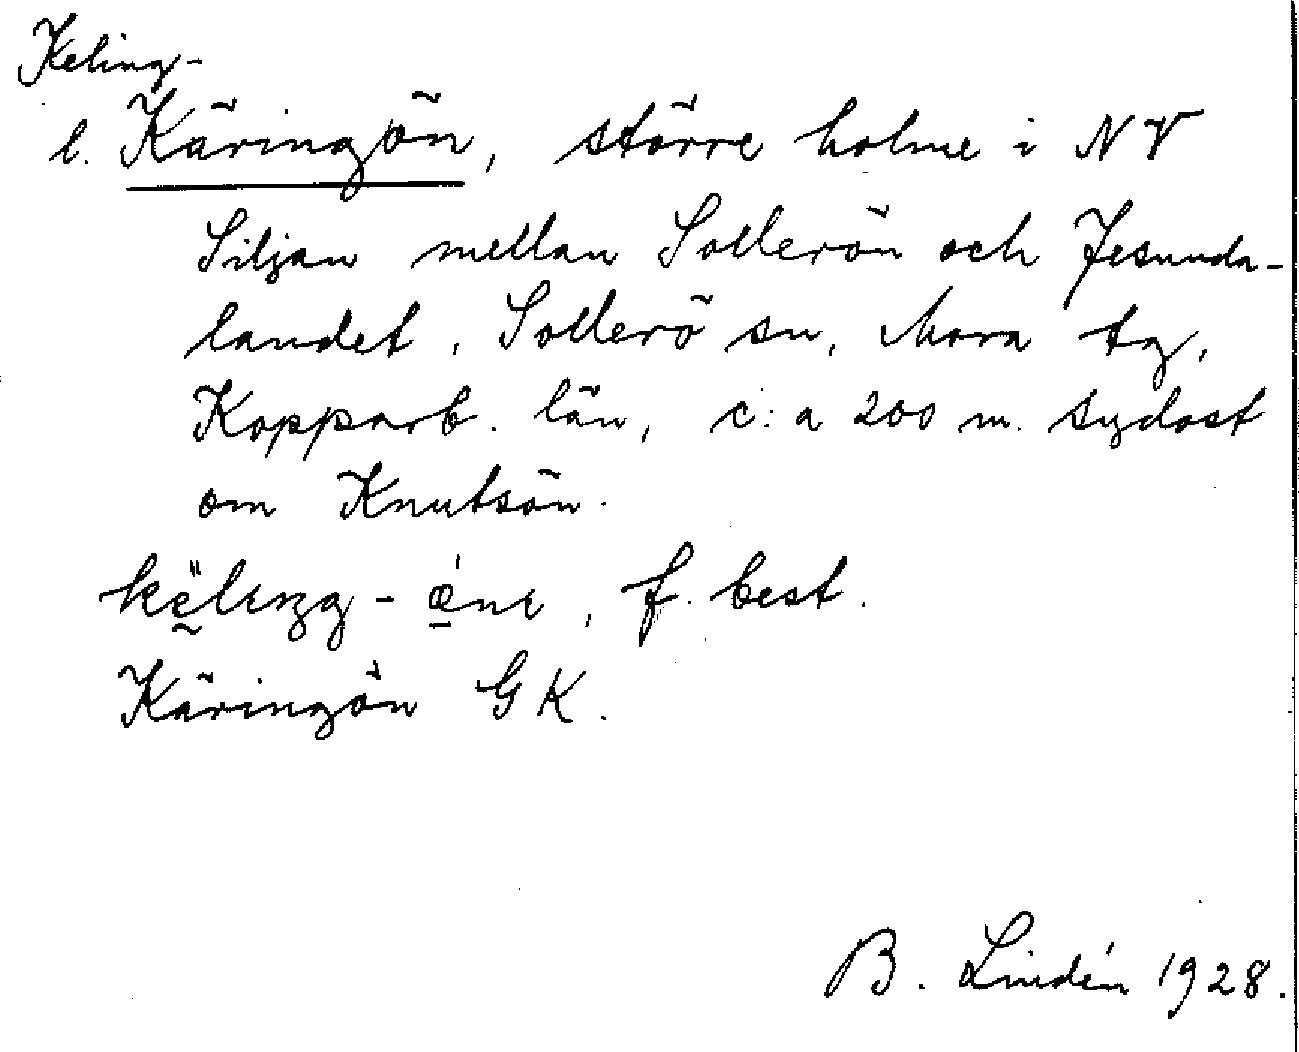 Keling-
l. Käringön, större holme i NV
Siljan mellan Sollerön och Jesunda-
landet, Sollerö sn, Mora tg,
Kopparb. län, c:a 200 m. sydost
om Knutsön.
f. best.
Käringön GK.
B. Lindén 1928.